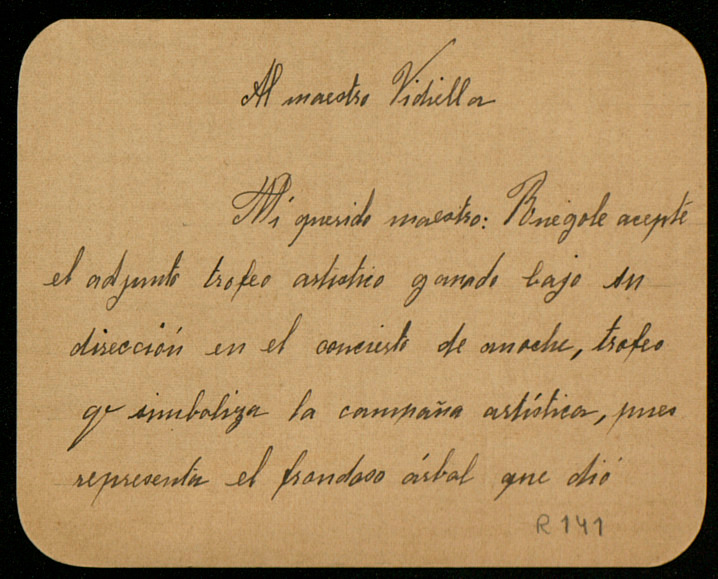 Al maestro Vidiella
Mi querido maestro: Ruégole acepte
el adjunto trofeo artístico ganado bajo su
dirección en el concierto de anoche, trofeo
qe simboliza la campaña artística, pues
representa el frondoso árbol que dió
R141